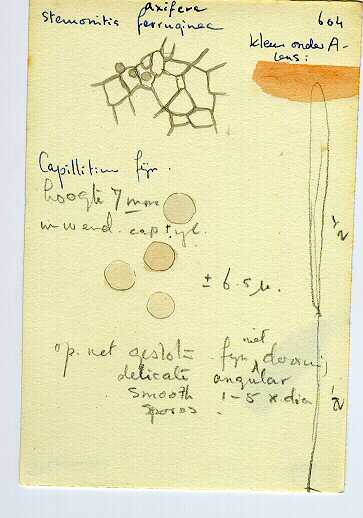 axifera
Stemonitis ferruginea
604
kleur onder A-
lens:
Capillitium fijn.
hoogte 7 mm
inwend. cap. ± yl.
± 6.5 µ.
½
op. net geslote fijn met doorn,
delicate angular
smooth 1-5 x dia
spores.
½